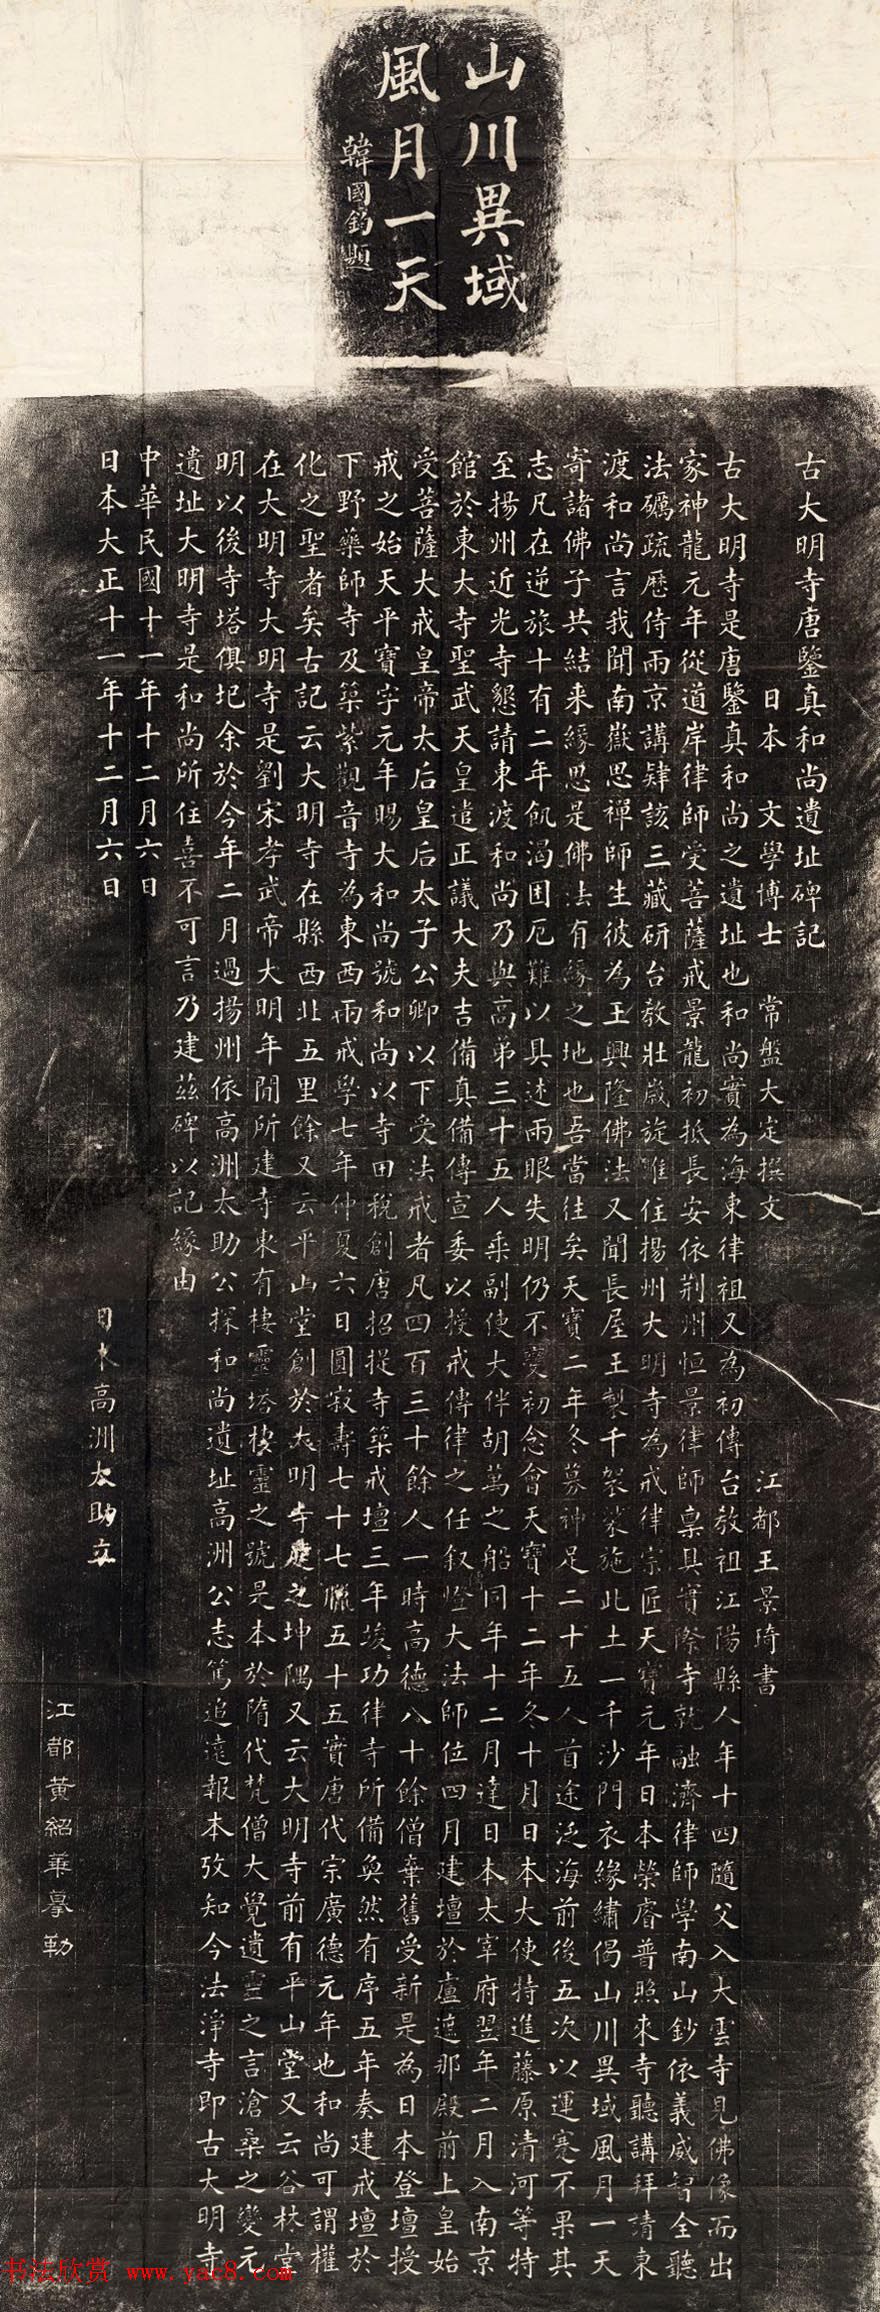 山川異域
風月一天
韓國鈞題
古大明寺唐鑒真和尚遺址碑記
日本 文學博士 常盤大定撰文 江都王景琦書
古大明寺是唐鑒真和尚之遺址也和尚實為海東律祖又為初傳台教祖江陽縣人年十四隨父入大雲寺見佛像而出
家神龍元年從道岸律師受菩薩戒景龍初抵長安依荆州恒景律師稟具實際寺就融濟律師學南山鈔依義威智全聽
法礪疏歷侍兩京講肆該三藏研台教壯歲旋淮住揚州大明寺為戒律宗匠天寶元年日本榮睿普照來寺聽講拜請東
渡和尚言我聞南嶽思禪師生彼為王興隆佛法又聞長屋王製千袈裟施此土一千沙門衣緣繡偈山川異域風月一天
寄諸佛子共結来緣思是佛法有緣之地也吾當往矣天寶二年冬募神足二十五人首途泛海前後五次以運蹇不果其
志凡在逆旅十有二年飢渴困厄難以具述兩眼失明仍不變初念會天寶十二年冬十月日本大使特進藤原清河等特
至揚州近光寺懇請東渡和尚乃與高弟三十五人乘副使大伴胡萬之船同年十二月達日本太宰府翌年二月入南京
館於東大寺聖武天皇遣正議大夫吉備真備傳宣委以授戒傳律之任叙燈大法師位四月建壇於盧遮那殿前上皇始
受菩薩大戒皇帝太后皇后太子公卿以下受法戒者凡四百三十餘人一時高德八十餘僧棄舊受新是為日本登壇授
戒之始天平寶字元年賜大和尚號和尚以寺田税創唐招提寺築戒壇三年竣功律寺所備奐然有序五年奏建戒壇於
下野藥師寺及築紫觀音寺為東西兩戒學七年仲夏六日圓寂壽七十七臘五十五實唐代宗廣德元年也和尚可謂權
化之聖者矣古記云大明寺在縣西北五里餘又云平山堂創於大明寺庭之坤隅又云大明寺前有平山堂又云谷林堂
在大明寺大明寺是劉宋孝武帝大明年間所建寺東有棲靈塔棲靈之號是本於隋代梵僧大覺遺靈之言滄桑之變元
明以後寺塔俱圮余於今年二月過揚州依高洲太助公探和尚遺址高洲公志篤追遠報本攷知今法淨寺即古大明寺
遺址大明寺是和尚所住喜不可言乃建兹碑以記緣由
中華民國十一年十二月六日
日本大正十一年十二月六日 日本高洲太助立
江都黃紹華摹勒
书法欣赏 www.yac8.com